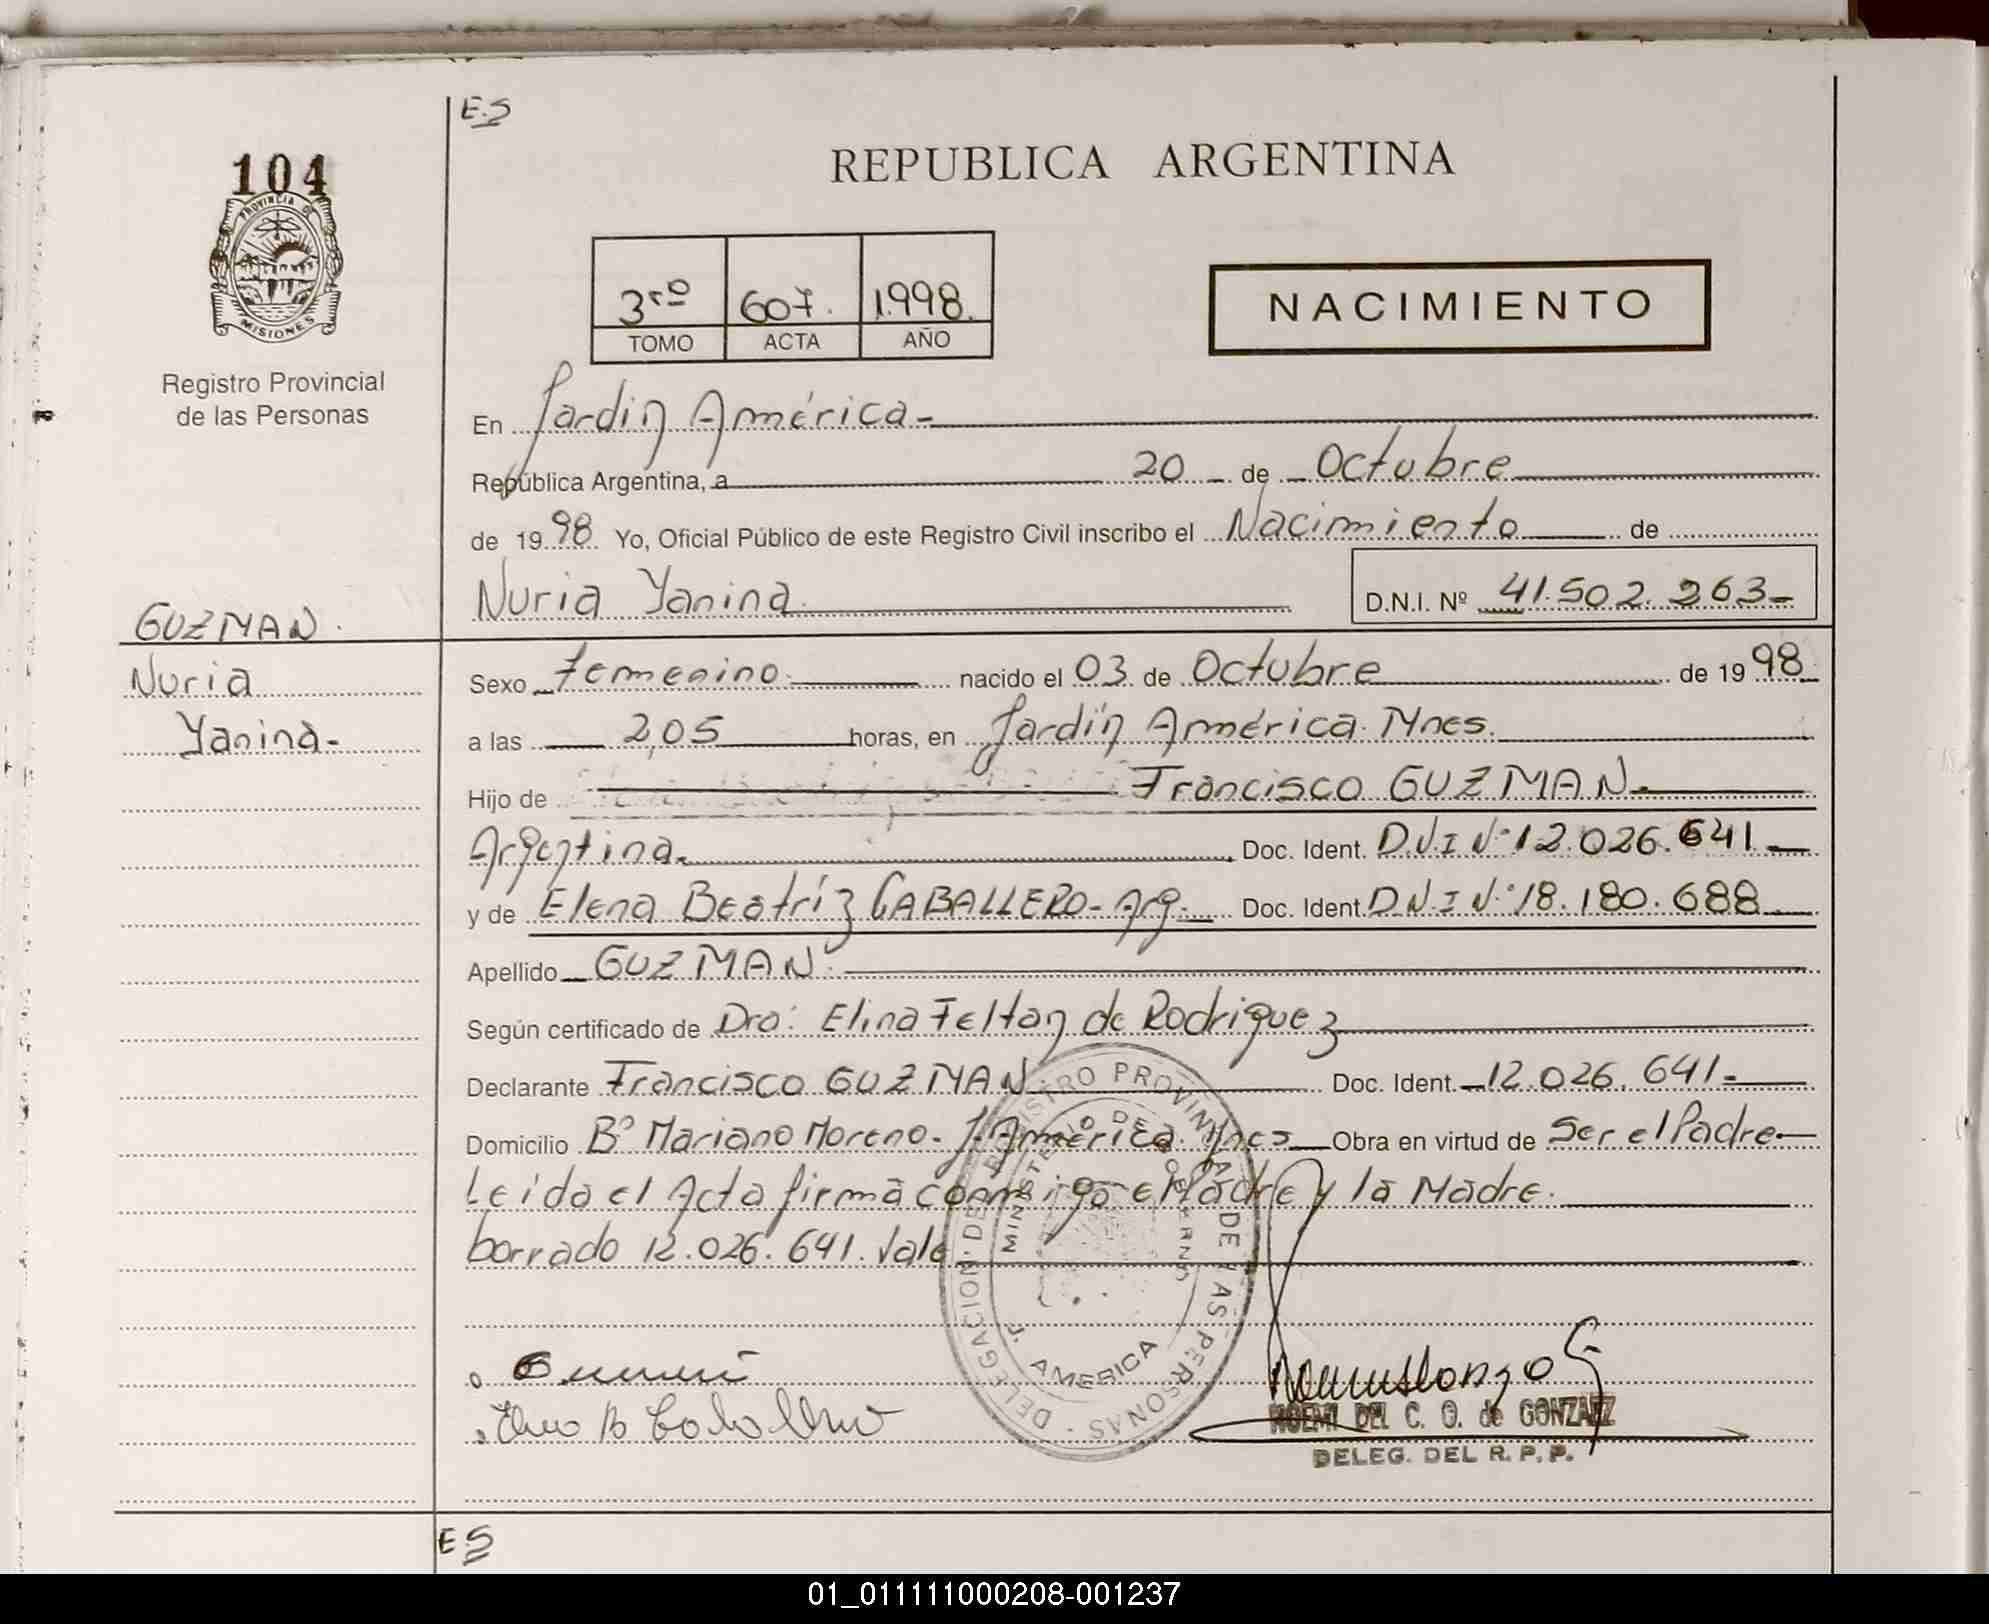 E.S
104
PROVINCIA DE
MISIONES
Registro Provincial
de las Personas
REPUBLICA ARGENTINA
3ro 607. 1.998.
TOMO ACTA AÑO
NACIMIENTO
En Jardin América-
República Argentina, a 20 de Octubre
de 1998 Yo, Oficial Público de este Registro Civil inscribo el Nacimiento de
Nuria Yanina D.N.I. Nº 41.502.263-
GUZMAN.
Nuria
Yanina-
Sexo Femenino. nacido el 03 de Octubre de 1998
a las 2,05 horas, en Jardín América. Mnes.
Hijo de Francisco GUZMAN.
Argentina. Doc. Ident. D.N.I Nº 12.026.641.
y de Elena Beatríz CABALLERO- Arg. Doc. Ident. D.N.I Nº 18.180.688
Apellido GUZMAN.
Según certificado de Dra: Elina Feltan de Rodriguez
Declarante Francisco GUZMAN Doc. Ident. 12.026.641-
Domicilio Bº Mariano Moreno. J. América. Mnes Obra en virtud de Ser el Padre
Leída el Acta firma conmigo el Padre y la Madre.
borrado 12.026.641. Vale
DELEGACION DEL REGISTRO PROVINCIAL DE LAS PERSONAS
MINISTERIO DE GOBIERNO
J. AMERICA
NOEMI DEL C. O. de GONZALEZ
DELEG. DEL R. P. P.
ES
01_011111000208-001237